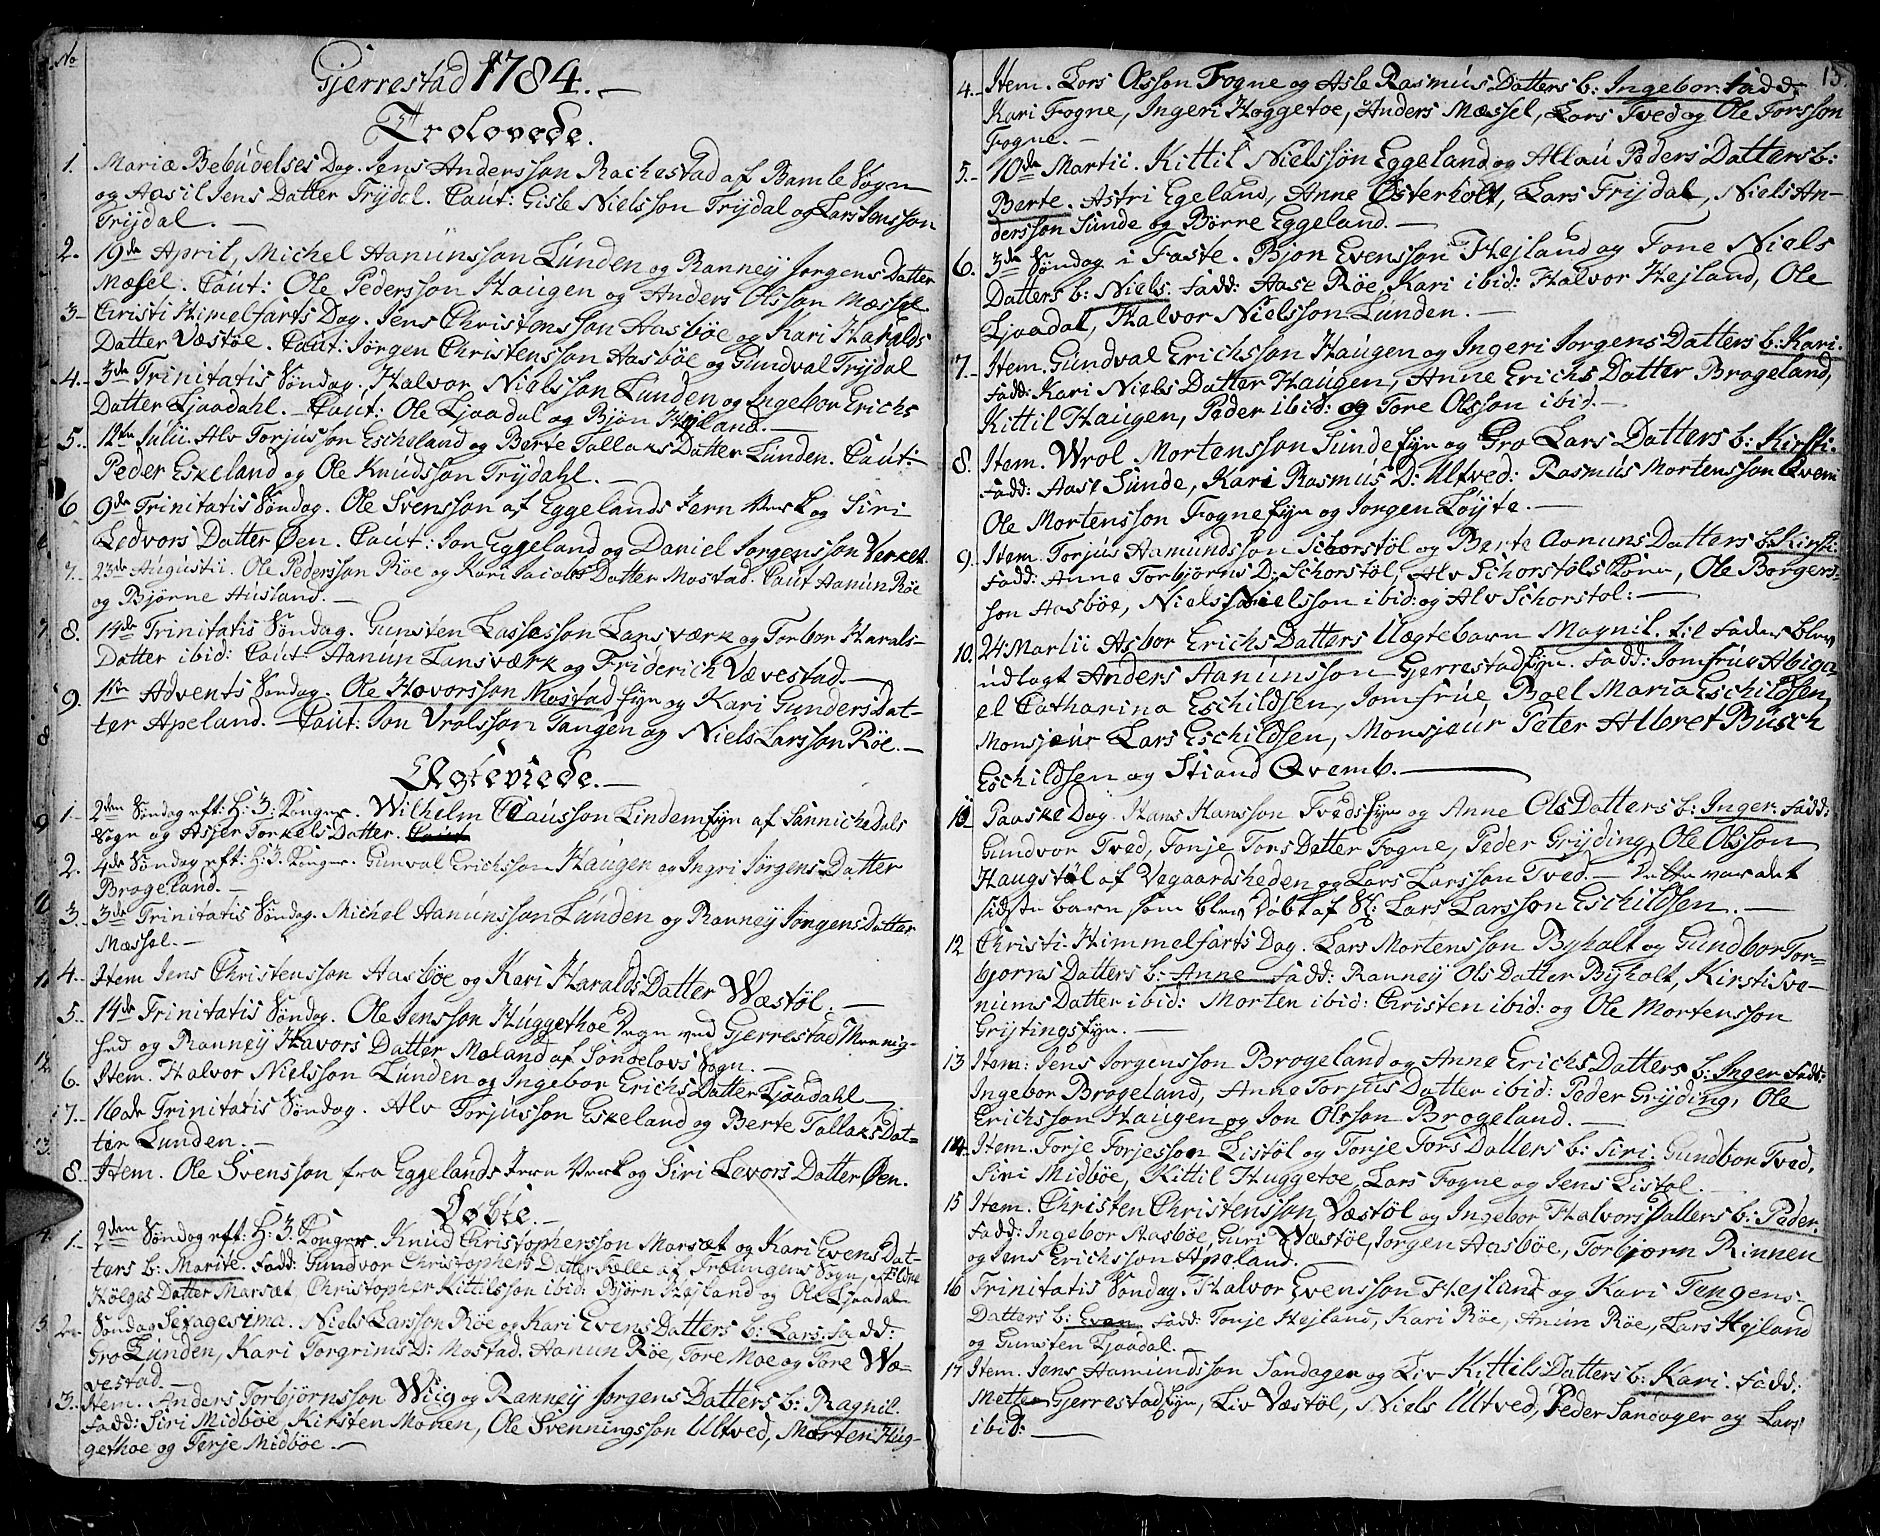 No
Gjerrestad 1784.
Trolovede.
1. Mariæ Bebudelses Dag. Jens Andersson Rachestad af Bamle Sogn
og Aasil Jens Datter Trydel. Caut: Gisle Nielsson Trydal og Lars Jensson
Trydal.
2. 19de April, Michel Aanunsson Lunden og Ranney Jorgens Datter
Mæsel. Caut: Ole Pedersson Haugen og Anders Olsson Mæssel.
3. Christi Himelfarts Dag. Jens Christensson Aasbøe og Kari Haralds
Datter Væstøl. Caut: Jørgen Christensson Aasbøe og Gundval Trydal
4. 3de Trinitatis Søndag. Halvor Nielsson Lunden og Ingebor Erichs
Datter Ljaadahl. Caut: Ole Ljaadal og Bjøn Hejland.
5. 12te Julii. Alv Torjusson Escheland og Berte Tallaks Datter Lunden. Caut:
Peder Eskeland og Ole Knudsson Trydahl.
6 9de Trinitatis Søndag. Ole Svensson af Eggelands Jern Verk og Siri
Ledvors Datter Øen. Caut: Jon Eggeland og Daniel Jorgensson Verket.
7. 23de Augustii. Ole Pedersson Røe og Kari Jacobs Datter Mostad. Caut Aanun Røe
og Bjørne Ausland.
8. 14de Trinitatis Søndag. Gunsten Lassesson Lansværk og Torbor Harals-
Datter ibid: Caut: Aanun Lansværk og Friderich Vævestad.
9. 1ste Advents Søndag. Ole Hovorsson Mostadsfyn og Kari Gunders Dat-
ter Apeland. Caut: Jon Vrolsson Tangen og Niels Larsson Røe.
Egteviede.
1. 2den Søndag eft: H: 3: Konger. Wilhelm Clausson Lindemsfyn af Sannichedals
Sogn og Asser Torkels Datter.
2. 4de Søndag eft: H: 3: Konger. Gunval Erichsson Haugen og Ingri Jørgens Datter
Brogeland.
3. 3de Trinitatis Søndag. Michel Aanunsson Lunden og Ranney Jorgens Datter
Mæssel.
4. Item Jens Christensson Aasbøe og Kari Haralds Datter Væstøl.
5. 14de Trinitatis Søndag. Ole Jensson Huggethoe Degn ved Gjerrestad Mennig-
hed og Ranney Havors Datter Moland af Søndelovs Sogn.
6. Item. Halvor Nielsson Lunden og Ingebor Erichs Datter Ljaadahl
7. 16de Trinitatis Søndag. Alv Torjusson Eskeland og Berte Tallaks Dat-
ter Lunden.
8. Item. Ole Svensson fra Eggelands Jern Verk og Siri Levors Datter Øen.
Døbte.
1. 2den Søndag eft: H: 3 Konger. Knud Christophersson Marsæt og Kari Evens Dat-
ters b: Marite. Fadd: Gundvor Christophers Datter Felle af Trælingens Sogn, Eldne
Hølges Datter Marsæt, Christopher Kittilsson ibid: Bjørn Hejland og Ole Ljaadal
2. Søndag Sexagesima. Niels Larsson Røe og Kari Evens Datters b: Lars. Fadd:
Gro Lunden, Kari Torgrims D: Mostad. Aanun Røe, Tore Moe og Tore Væ-
vestad.
3. Item. Anders Torbjørnsson Wiig og Ranney Jorgens Datters b: Ragnil.
Fadd: Siri Midbøe, Kirsten Monen, Ole Svenningsson Ultved, Morten Hug-
gethoe og Terje Midbøe.
15
4. Item. Lors Olsson Fogne og Asle Rasmus Datters b: Ingebor. Fadd:
Kari Fogne, Ingeri Hoggetoe, Anders Mæssel, Lars Tved og Ole Torsson
Fogne.
5. 10de Martii. Kittil Nielsson Eggeland og Allau Peders Datters b:
Berte. Astri Egeland, Anne Østerholt, Lars Trydal, Niels An-
dersson Sunde og Børre Eggeland.
6. 3de Søndag i Faste. Bjon Evensson Hejland og Tone Niels
Datters b: Niels. Fadd: Aase Røe, Kari ibid: Halvor Hejland, Ole
Ljaadal, Halvor Nielsson Lunden.
7. Item. Gundval Erichsson Haugen og Ingeri Jorgens Datters b: Kari.
Fadd: Kari Niels Datter Haugen, Anne Erichs Datter Brogeland,
Kittil Haugen, Peder ibid: og Tore Olsson ibid.
8. Item. Wrol Mortensson Sundesfyn og Gro Lars Datters b: Kirsti.
Fadd: Aase Sunde, Kari Rasmus D: Ultved: Rasmus Mortensson Qvem
Ole Mortensson Fognesfyn og Jorgen Løyte.
9. Item. Torjus Aamundsson Schorstøl og Berte Aanuns Datters b: Kirsti:
Fadd: Anne Torbjørns D: Schorstøl, Alv Schorstøls Kone, Ole Borgers-
son Aasbøe, Niels Nielsson ibid: og Alv Schorstol:
10. 24 Martii Asbor Erichs Datters Uægtebarn Magnil. til Fader blev
udlagt Anders Aanunsson Gjerrestadsfyn. Fadd: Jomfrue Abiga-
el Catharina Eschildsen, Jomfrue Boel Maria Eschildsen,
Monsjeur Lars Eschildsen, Monsjeur Peter Albret Busch
Eschildsen og Stiand Qvemb.
11. Paaske Dag. Hans Hansson Tvedsfyn og Anne Ols Datters b: Inger. Fadd:
Gundvor Tved, Tonje Tors Datter Fogne, Peder Gryding, Ole Olsson
Haugstøl af Vegaardsheden og Lars Larsson Tved. Dette var det
sidste barn som blev døbt af Sl: Lars Larsson Eschildsen.
12 Christi Himmelfarts Dag. Lars Mortensson Byholt og Gundbor Tor-
bjorns Datters b: Anne Fadd: Ranney Ols Datter Byholt, Kirsti Sva-
niums Datter ibid: Morten ibid: Christen ibid: og Ole Mortensson
Grytingsfyn.
13 Item: Jens Jorgensson Brogeland og Anne Erichs Datters b: Inger Fadd:
Ingebor Brogeland, Anne Torjus Datter ibid: Peder Gryding, Ole
Erichsson Haugen og Jon Olsson Brogeland.
14. Item. Torje Torjesson Listøl og Tonje Tors Datters b: Siri. Gundbor Tved,
Siri Midbøe, Kittil Huggetoe, Lars Fogne og Jens Listøl.
15 Item. Christen Christensson Væstøl og Ingebor Halvors Datters b: Peder.
Fadd: Ingebor Aasbøe, Guri Væstøl, Jorgen Aasbøe, Torbjorn Rinnen
og Jens Erichsson Apeland.
16 Trinitatis Søndag. Halvor Evensson Hejland og Kari Tangens
Datters b: Even. Fadd: Tonje Hejland, Kari Røe, Anun Røe, Lars Hejland
og Gunsten Ljaadal.
17 Item. Jens Aamundsson Sandager og Liv Kittils Datters b: Kari. Fadd:
Mette Gjerrestadsfyn, Liv Væstøl, Niels Ultved, Peder Sandager og Lars
ibid: